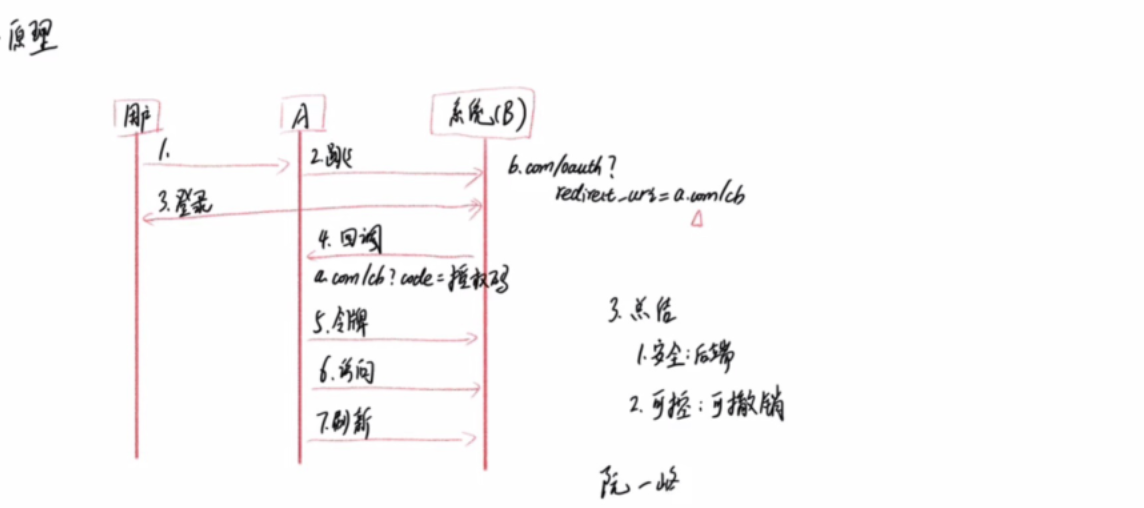 原理
用户
A
系统(B)
1.
2.跳转
b.com/oauth?
redirect_uri=a.com/cb
3.登录
4.回调
a.com/cb?code=授权码
5.令牌
6.访问
7.刷新
3.总结
1.安全:后端
2.可控:可撤销
阮一峰